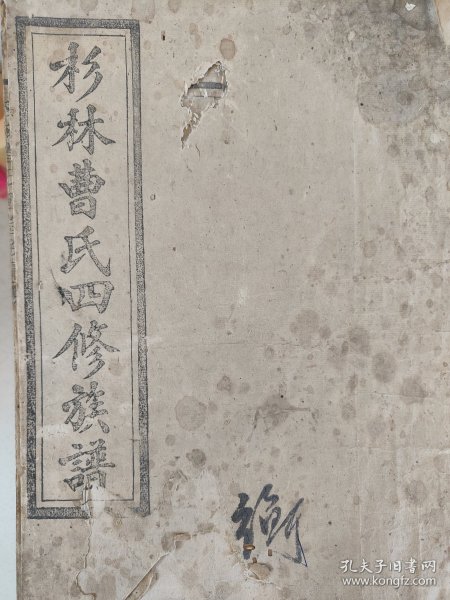 杉林曹氏四修族譜
衡
孔夫子旧书网
www.kongfz.com